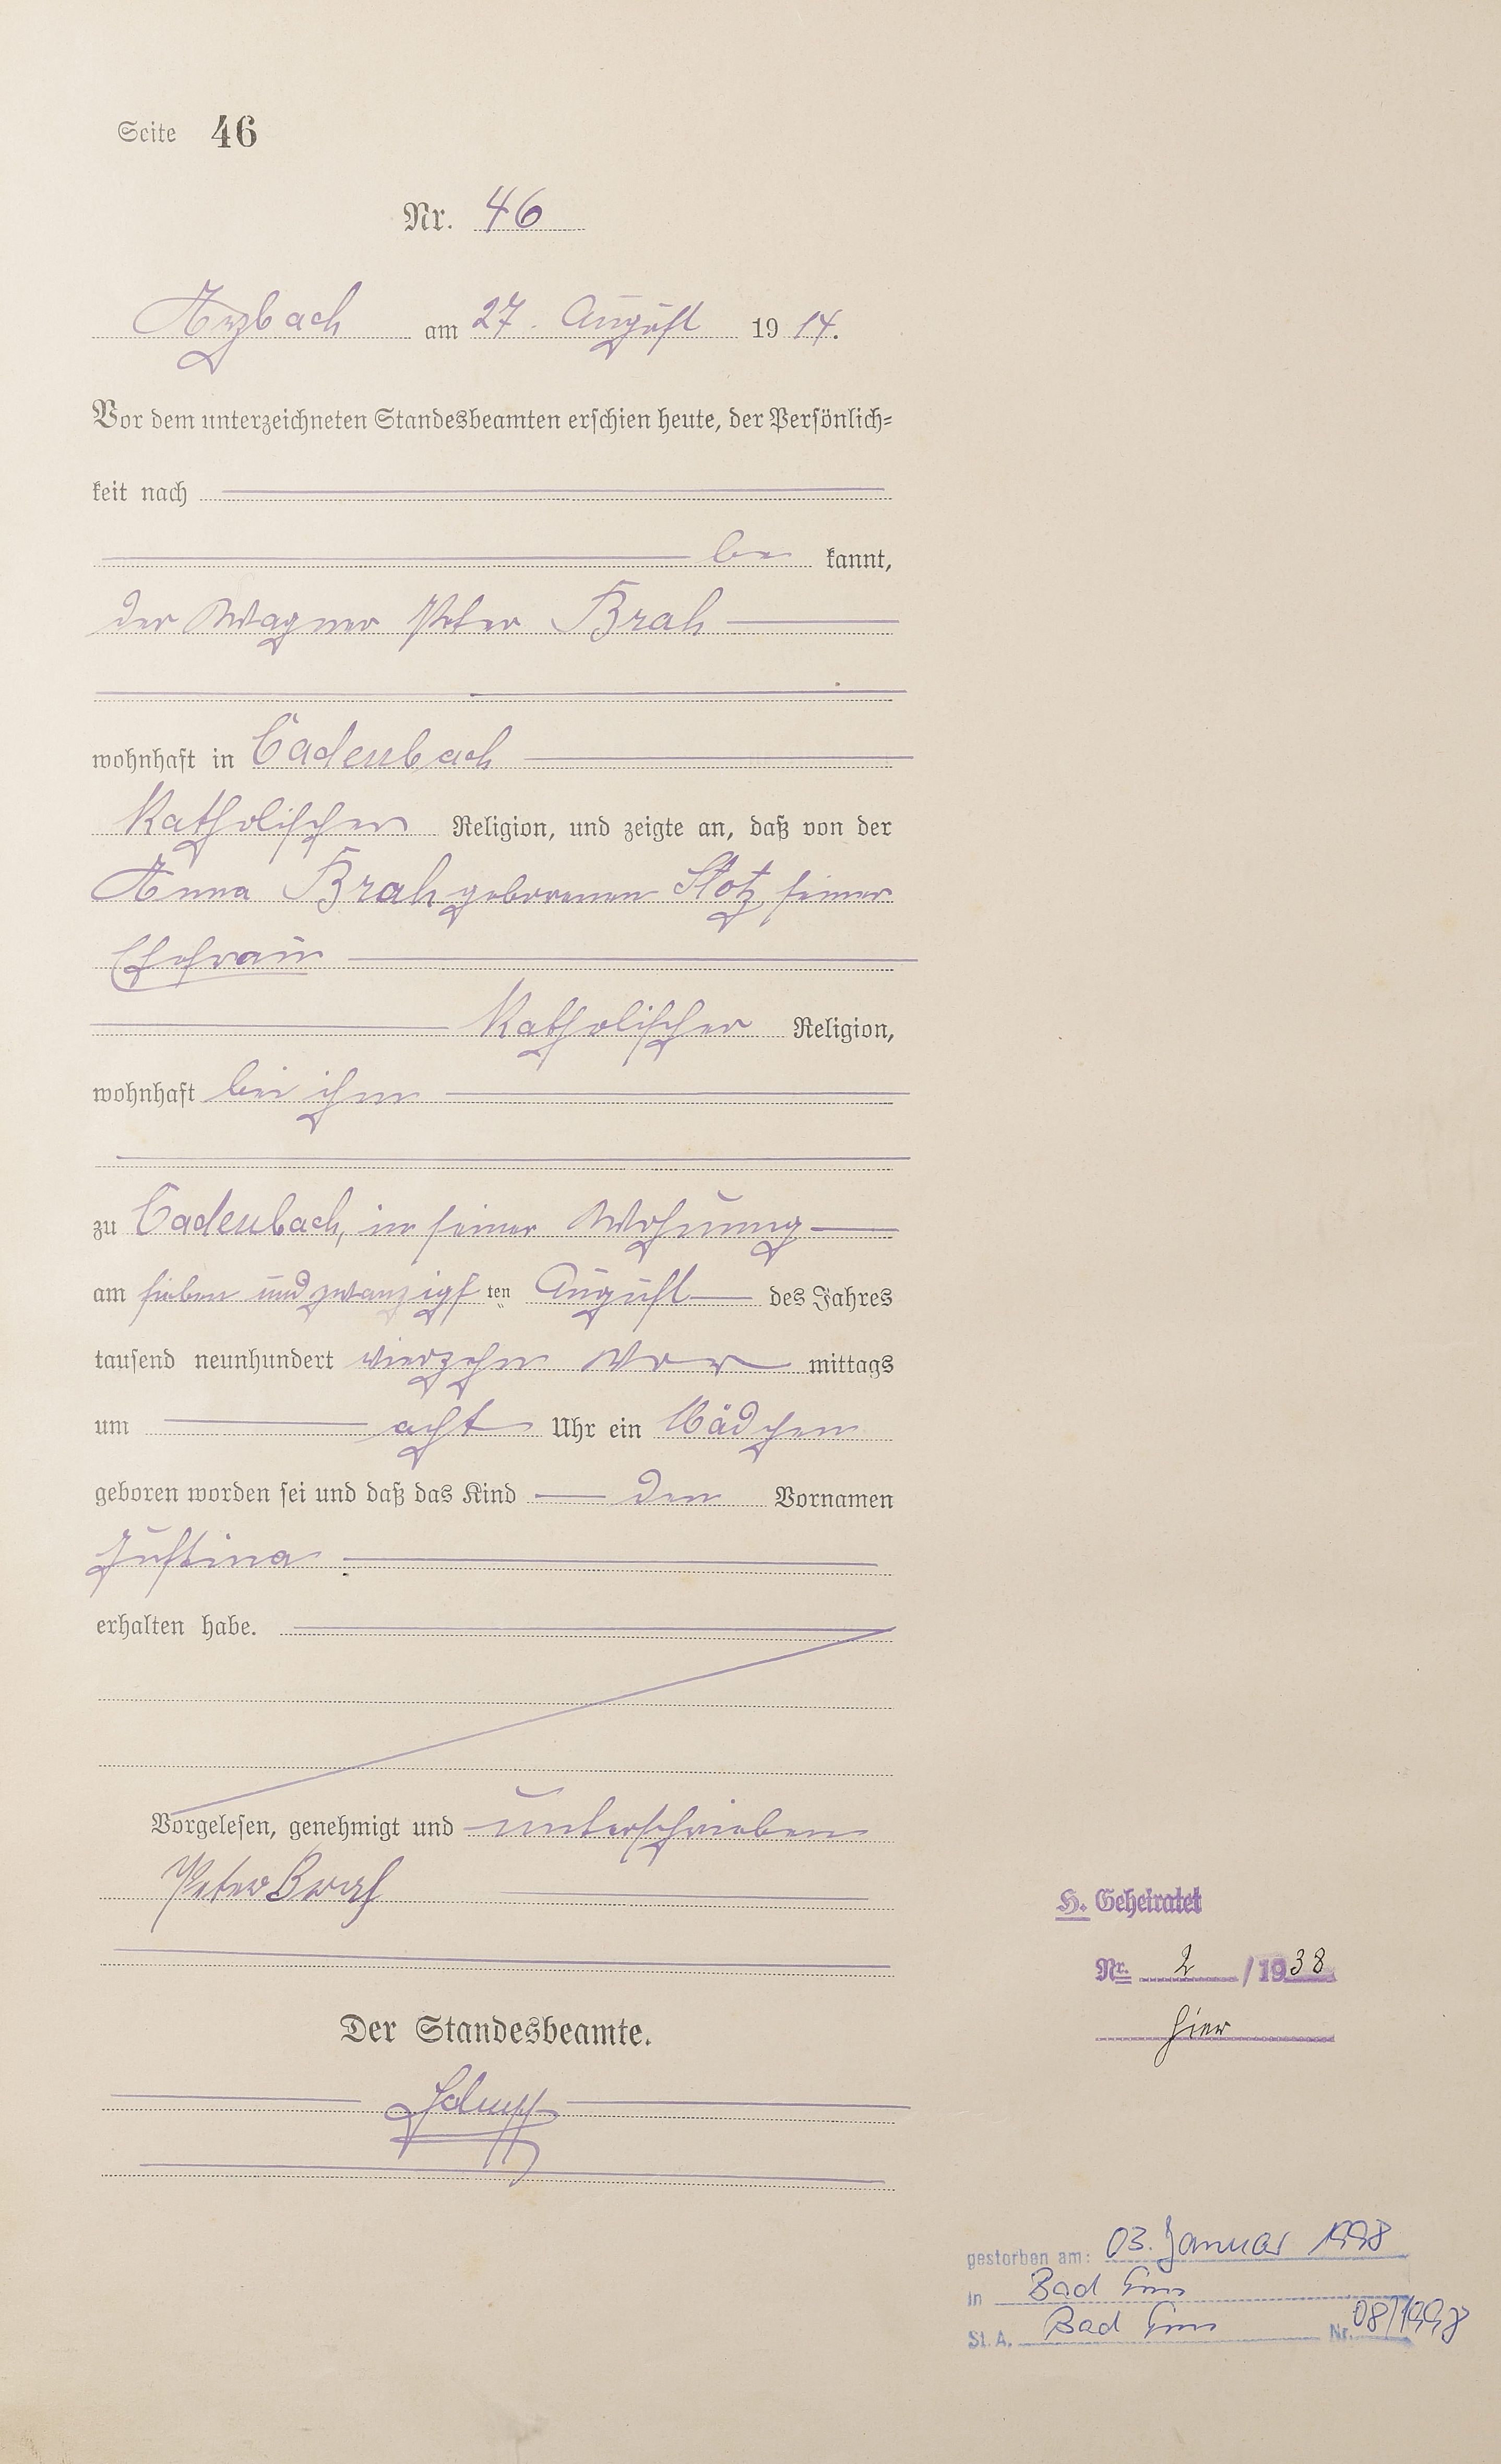 Seite 46
Nr. 46
Arzbach am 27. August 1914.
Vor dem unterzeichneten Standesbeamten erschien heute, der Persönlich=
keit nach
be kannt,
der Wagner Peter Brah
wohnhaft in Cadenbach
Katholischer Religion, und zeigte an, daß von der
Anna Brah geborenen Stotz seiner
Ehefrau
Katholischer Religion,
wohnhaft bei ihm
zu Cadenbach, in seiner Wohnung
am sieben und zwanzigsten August des Jahres
tausend neunhundert vierzehn Vor mittags
um acht Uhr ein Mädchen
geboren worden sei und daß das Kind den Vornamen
Justina
erhalten habe.
Vorgelesen, genehmigt und unterschrieben
Peter Brah
Der Standesbeamte.
H. Geheiratet
Nr. 2 / 1938
hier
gestorben am: 03. Januar 1998
in Bad Ems
St. A. Bad Ems Nr. 08/1998